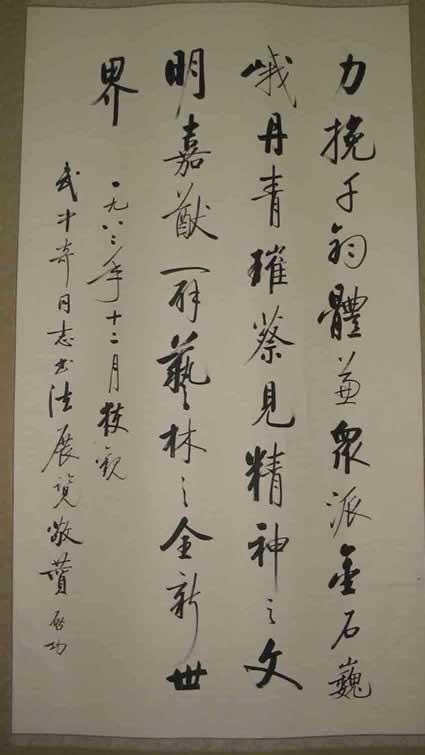 力挽千鈞體兼眾派金石巍
峨丹青璀蔡見精神之文
明嘉猷一辟藝林之全新世
界
一九八三年十二月获观
武中奇同志书法展览敬贊 启功